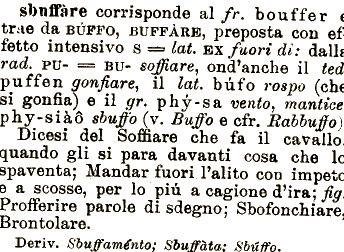 sbuffàre corrisponde al fr. bouffer e
trae da BÚFFO, BUFFÀRE, preposta con ef-
fetto intensivo S = lat. EX fuori di: dalla
rad. PU- = BU- soffiare, ond'anche il ted
puffen gonfiare, il lat. búfo rospo (che
si gonfia) e il gr. phỳ-sa vento, mantice
phy-siàô sbuffo (v. Buffo e cfr. Rabbuffo)
Dicesi del Soffiare che fa il cavallo,
quando gli si para davanti cosa che lo
spaventa; Mandar fuori l'alito con impeto
e a scosse, per lo piú a cagione d'ira; fig.
Profferire parole di sdegno; Sbofonchiare,
Brontolare.
Deriv. Sbuffaménto; Sbuffàta; Sbúffo.